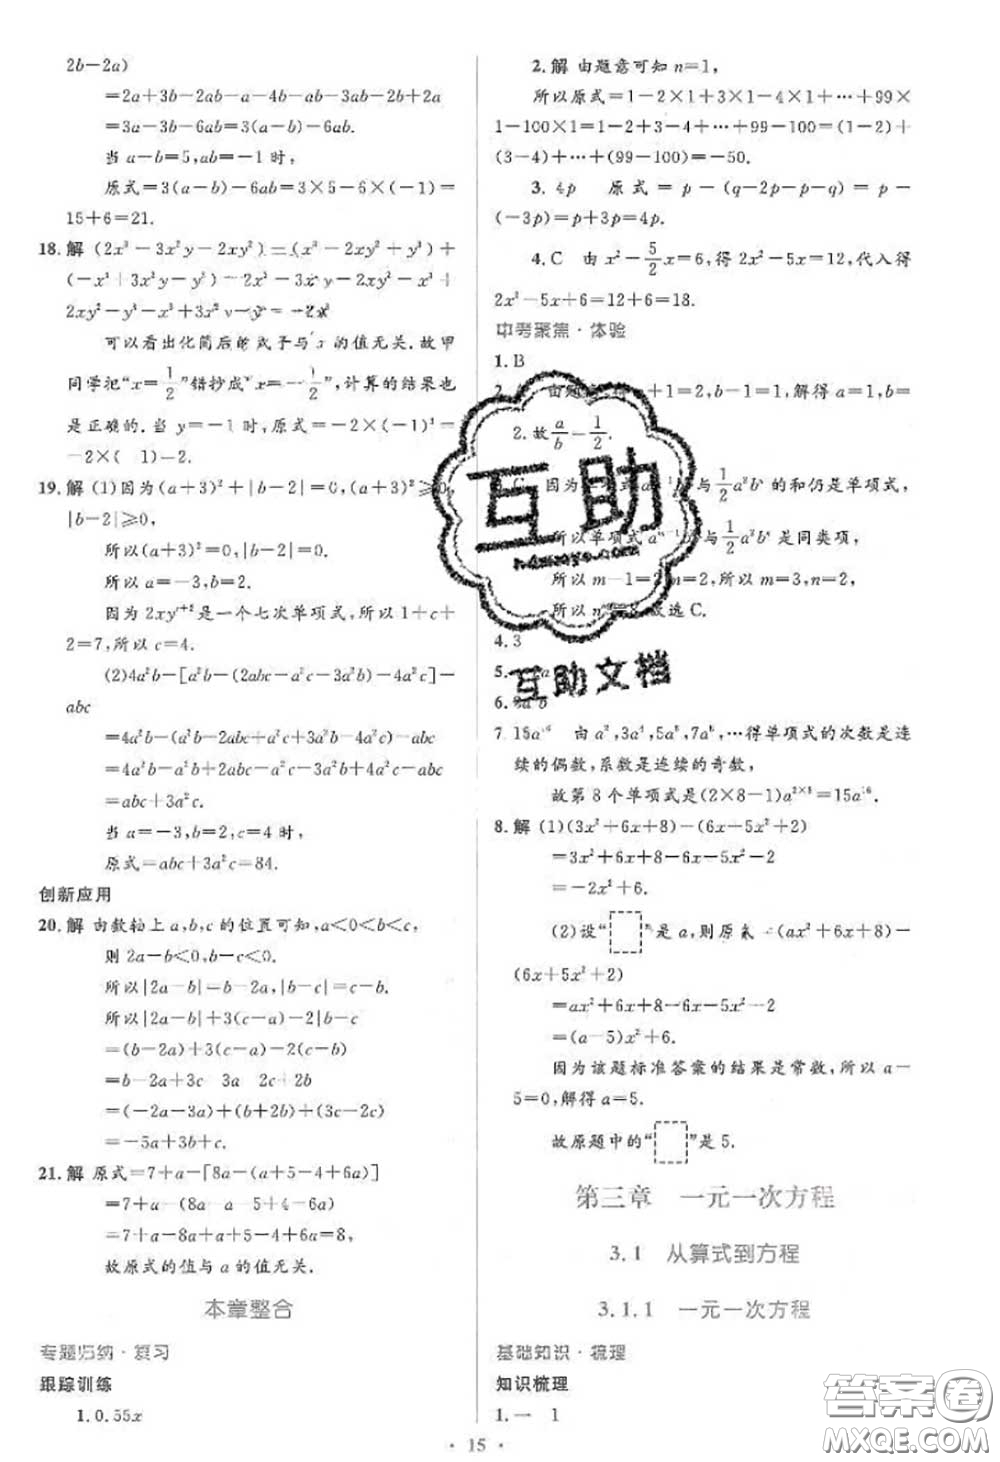 2b-2a)
=2a+3b-2ab-a-4b-ab-3ab-2b+2a
=3a-3b-6ab=3(a-b)-6ab.
当 a-b=5,ab=-1 时,
原式=3(a-b)-6ab=3×5-6×(-1)=
15+6=21.
18.解 (2x³-3x²y-2xy²)-(x³-2xy²+y³)+
(-x³+3x²y-y³)=2x³-3x²y-2xy²-x³+
2xy²-y³-x³+3x²y-y³=-2y³
可以看出化简后的式子与 x 的值无关.故甲
同学把“x=1/2”错抄成“x=-1/2”,计算的结果也
是正确的.当 y=-1 时,原式=-2×(-1)³=
-2×( 1)-2.
19.解 (1)因为(a+3)²+|b-2|=0,(a+3)²≥0,
|b-2|≥0,
所以(a+3)²=0,|b-2|=0.
所以 a=-3,b=2.
因为 2xyᶜ⁺²是一个七次单项式,所以 1+c+
2=7,所以 c=4.
(2)4a²b-[a²b-(2abc-a²c-3a²b)-4a²c]-
abc
=4a²b-(a²b-2abc+a²c+3a²b-4a²c)-abc
=4a²b-a²b+2abc-a²c-3a²b+4a²c-abc
=abc+3a²c.
当 a=-3,b=2,c=4 时,
原式=abc+3a²c=84.
创新应用
20.解 由数轴上 a,b,c 的位置可知,a<0<b<c,
则 2a-b<0,b-c<0.
所以|2a-b|=b-2a,|b-c|=c-b.
所以|2a-b|+3(c-a)-2|b-c|
=(b-2a)+3(c-a)-2(c-b)
=b-2a 3c 3a 2c+2b
=(-2a-3a)+(b+2b)+(3c-2c)
=-5a+3b+c.
21.解 原式=7+a-[8a-(a+5-4+6a)]
=7+a-(8a a-5+4-6a)
=7+a-8a+a+5-4+6a=8,
故原式的值与 a 的值无关.
本章整合
专题归纳·复习
跟踪训练
1.0.55x
2.解 由题意可知 n=1,
所以原式=1-2×1+3×1-4×1+…+99×
1-100×1=1-2+3-4+…+99-100=(1-2)+
(3-4)+…+(99-100)=-50.
3. 4p 原式=p-(q-2p-p-q)=p-
(-3p)=p+3p=4p.
4.C 由 x²-5/2x=6,得 2x²-5x=12,代入得
2x²-5x+6=12+6=18.
中考聚焦·体验
1.B
2. 由题 +1=2,b-1=1,解得 a=1,b=
2.故a/b=1/2.
C 因为 与1/2a²bⁿ 的和仍是单项式,
所以单项式 与1/2a²bⁿ是同类项,
所以 m-1=2,n=2,所以 m=3,n=2,
所以 nᵐ=8.故选 C.
4.3
5.
6.
7. 15a¹⁶ 由 a²,3a⁴,5a⁶,7a⁸,…得单项式的次数是连
续的偶数,系数是连续的奇数,
故第 8 个单项式是(2×8-1)a²ˣ⁸=15a¹⁶.
8.解 (1)(3x²+6x+8)-(6x+5x²+2)
=3x²+6x+8-6x-5x²-2
=-2x²+6.
(2)设“ ”是 a,则原式=(ax²+6x+8)-
(6x+5x²+2)
=ax²+6x+8-6x-5x²-2
=(a-5)x²+6.
因为该题标准答案的结果是常数,所以 a-
5=0,解得 a=5.
故原题中的“ ”是 5.
第三章 一元一次方程
3.1 从算式到方程
3.1.1 一元一次方程
基础知识·梳理
知识梳理
1.一 1
· 15 ·
互助
互助文档
答案卷
MXQE.COM